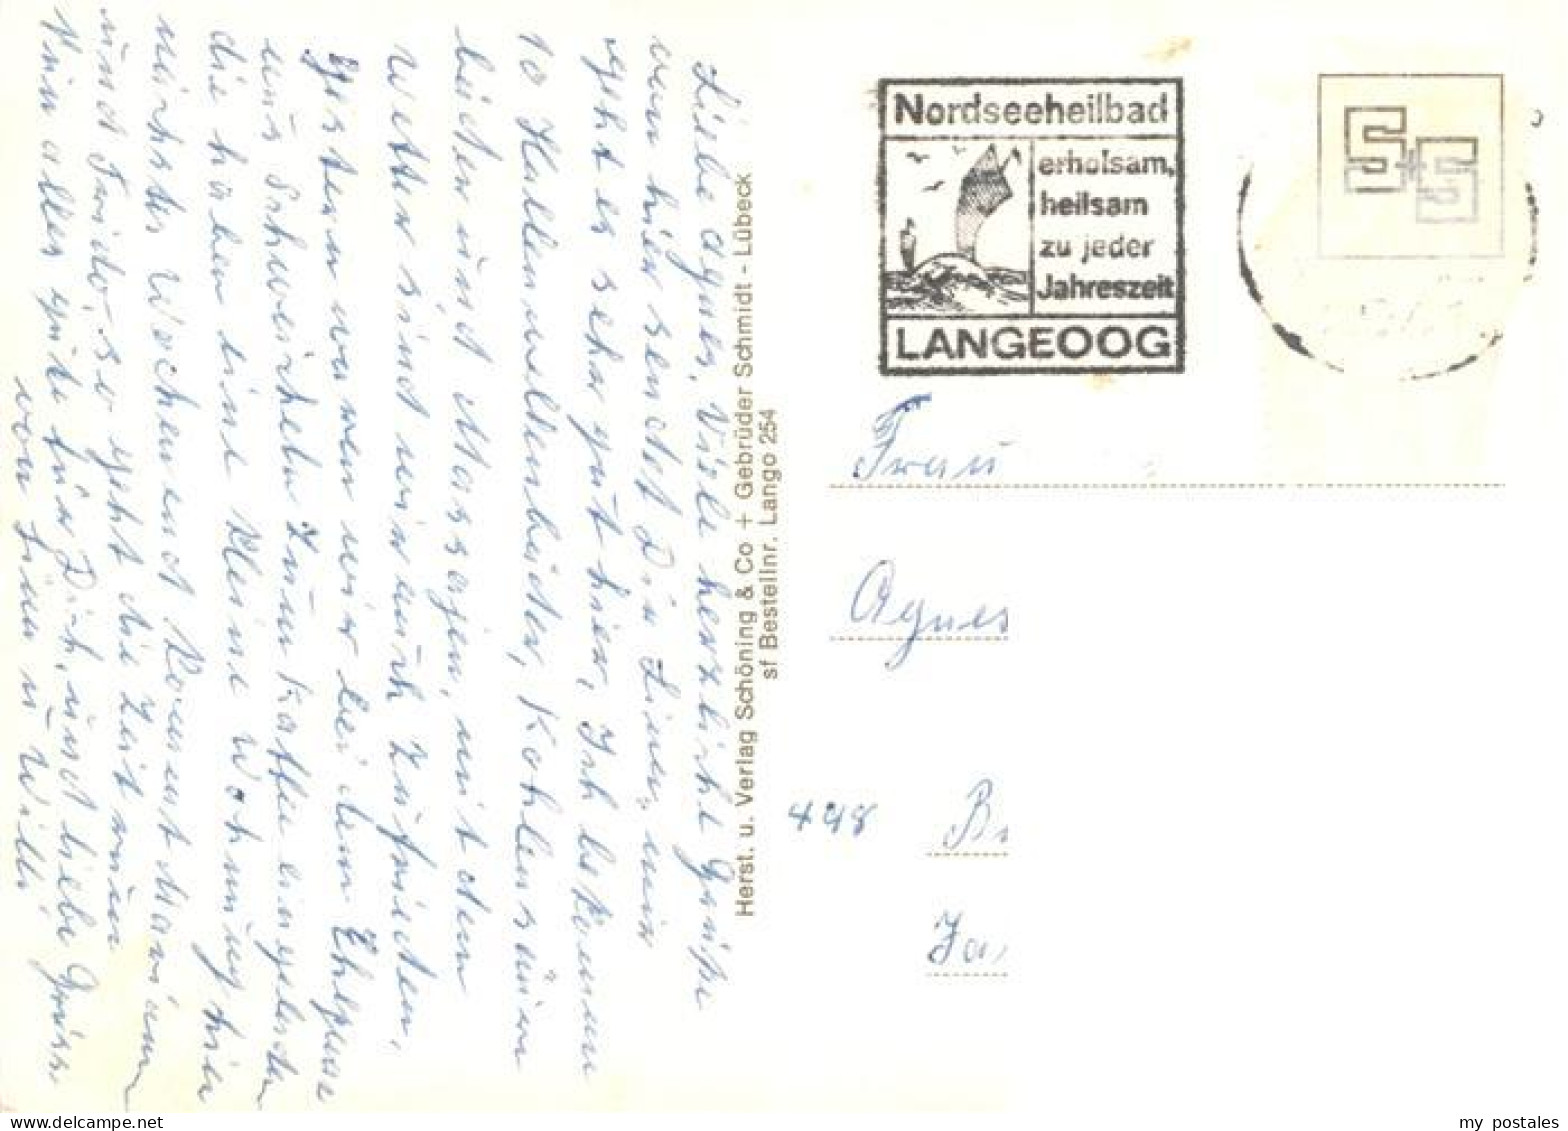 Liebe Agnes, Viele herzliche Grüße
von hier sendet Dir Lina, mir
geht es sehr gut hier, Ich bekomme
10 Hallenwellenbäder, Kohlensäure
bäder und Massagen, mit dem
Wetter sind wir auch zufrieden,
Gestern waren wir bei dem Ehepaar
aus Schweicheln zum Kaffee eingeladen
die haben eine kleine Wohnung hier
nächstes Wochenend kommt Mariann
und Frido, so geht die Zeit rum
Nun alles gute für Dich, und liebe Grüsse
von Lina u Willi
Herst. u. Verlag Schöning & Co + Gebrüder Schmidt - Lübeck
sf Bestellnr. Lango 254
Nordseeheilbad
erholsam,
heilsam
zu jeder
Jahreszeit
LANGEOOG
S+S
Frau
Agnes
498
my postales